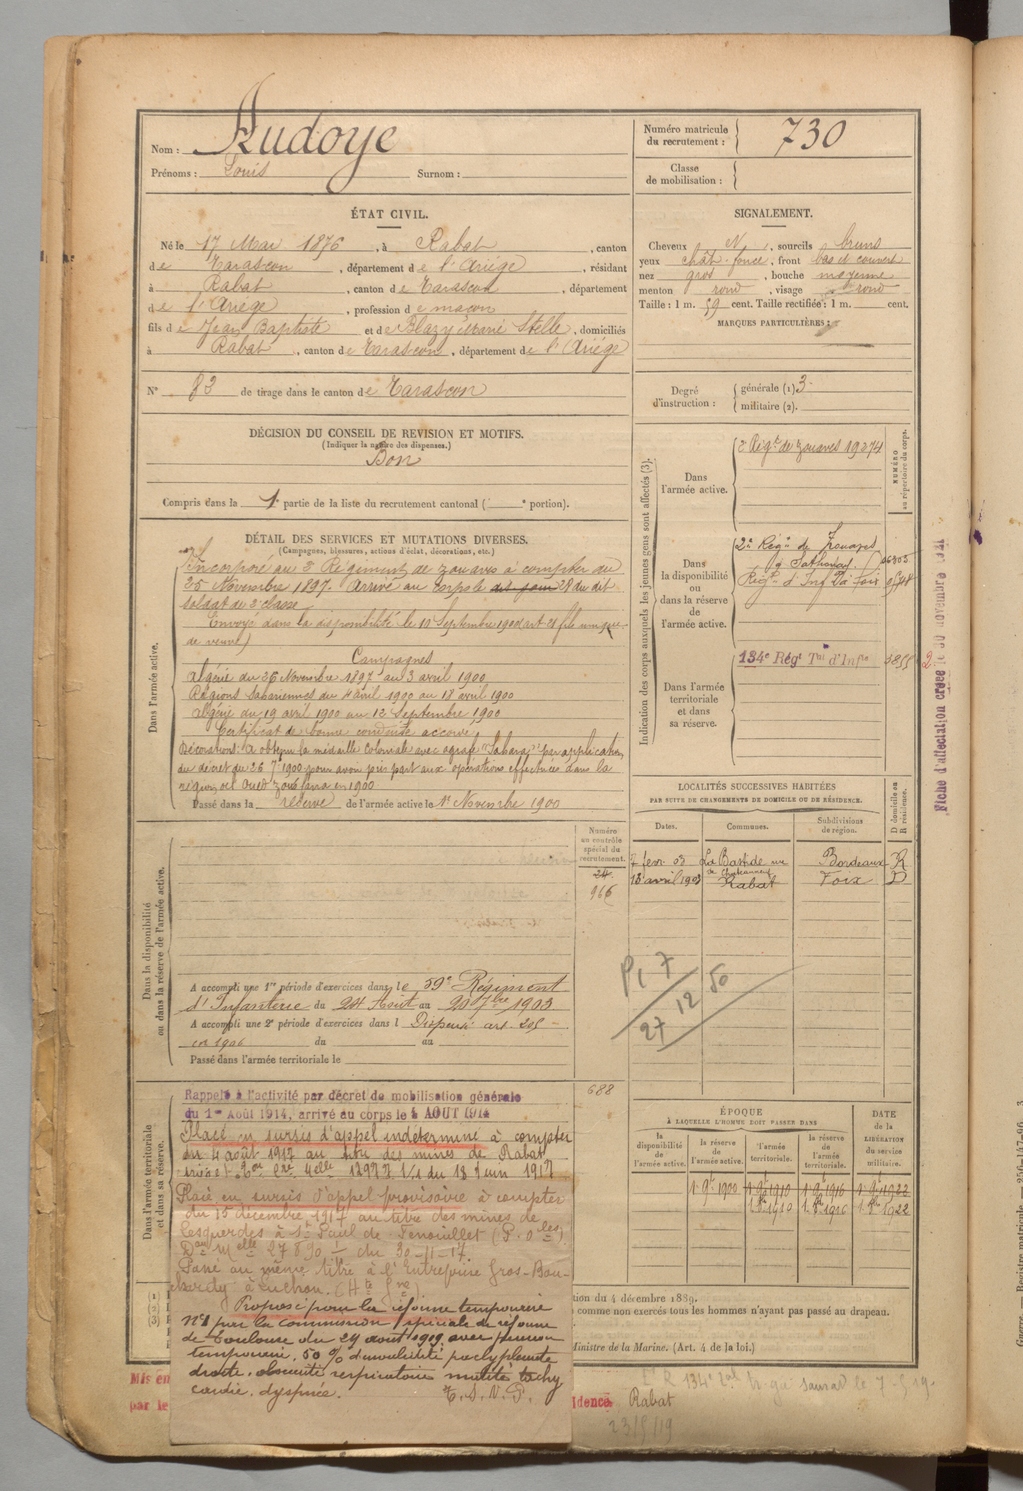 Nom : Audoye
Prénoms : Louis Surnom :
Numéro matricule du recrutement : 730
Classe de mobilisation :
ÉTAT CIVIL.
Né le 17 Mai 1876, à Rabat, canton
de Tarascon, département de l'Ariége, résidant
à Rabat, canton de Tarascon, département
de l'Ariége, profession de maçon
fils de Jean Baptiste et de Blazy Marie Stelle, domiciliés
à Rabat, canton de Tarascon, département de l'Ariége
N° 83 de tirage dans le canton de Tarascon
SIGNALEMENT.
Cheveux N, sourcils bruns
yeux chat. foncé, front bas et couvert
nez gros, bouche moyenne
menton rond, visage rond
Taille : 1 m. 59 cent. Taille rectifiée : 1 m. cent.
MARQUES PARTICULIÈRES :
Degré d'instruction : générale (1) 3
militaire (2).
DÉCISION DU CONSEIL DE REVISION ET MOTIFS.
(Indiquer la nature des dispenses.)
Bon
Compris dans la 1e partie de la liste du recrutement cantonal ( e portion).
DÉTAIL DES SERVICES ET MUTATIONS DIVERSES.
(Campagnes, blessures, actions d'éclat, décorations, etc.)
Dans l'armée active.
Incorporé au 3e Régiment de zouaves à compter du
25 Novembre 1897. Arrivé au corps le dit jour 28 du dit
soldat de 2e classe
Envoyé dans la disponibilité le 10 Septembre 1900 (art 21 fils unique
de veuve)
Campagnes
Algérie du 26 Novembre 1897 au 3 avril 1900
Régions Sahariennes du 4 avril 1900 au 18 avril 1900
Algérie du 19 avril 1900 au 12 Septembre 1900
Certificat de bonne conduite accordé
Décorations : a obtenu la médaille coloniale avec agrafe "Sahara" par application
du décret du 26 7bre 1900 pour avoir pris part aux opérations effectuées dans la
région de l'Oued en 1900
Passé dans la réserve de l'armée active le 1er Novembre 1900
Indication des corps auxquels les jeunes gens sont affectés (3).
NUMÉRO au répertoire du corps.
Dans l'armée active.
3e Régt de zouaves 19274
Dans la disponibilité ou dans la réserve de l'armée active.
2e Régt de Zouaves
à Sathonay
Régt d'Inf de Foix
Dans l'armée territoriale et dans sa réserve.
134e Régt Tal d'Infie
Fiche d'affectation créée le 30 novembre 1921
LOCALITÉS SUCCESSIVES HABITÉES
PAR SUITE DE CHANGEMENTS DE DOMICILE OU DE RÉSIDENCE.
Dates. Communes. Subdivisions de région. D domicile ou R résidence.
7 fevr. 03 La Bastide Bordeaux R
13 avril 1903 Rabat Foix D
Numéro au contrôle spécial du recrutement.
24
966
Dans la disponibilité ou dans la réserve de l'armée active.
A accompli une 1re période d'exercices dans le 59e Régiment
d'Infanterie du 24 Août au 20 7bre 1903
A accompli une 2e période d'exercices dans l Dispensé art. 205
en 1906 du au
Passé dans l'armée territoriale le
P1 7
27 12 50
688
Dans l'armée territoriale et dans sa réserve.
Rappelé à l'activité par décret de mobilisation générale
du 1er Août 1914, arrivé au corps le 4 AOUT 1914
Placé en sursis d'appel indéterminé à compter
du 4 août 1917 au titre des mines de Rabat
1/1 du 18 Juin 1917
Placé en sursis d'appel provisoire à compter
du 15 décembre 1917 au titre des mines de
Lesquerdes à St Paul de Fenouillet (P. Oles)
Don Melle 27830 1/ du 30-11-17.
Passé au même titre à l'Entreprise Gros-Bou-
à Luchon. (Hte Gne)
Proposé pour la réforme temporaire
n°1 par la commission spéciale de réforme
de Toulouse du 24 août 1919 avec pension
temporaire, 50 % d'invalidité pachypleurite
droite, obscurité respiratoire matité tachy
cardie, dyspnée. T. S. N. P.
ÉPOQUE
À LAQUELLE L'HOMME DOIT PASSER DANS
la disponibilité de l'armée active. la réserve de l'armée active. l'armée territoriale. la réserve de l'armée territoriale.
DATE de la LIBÉRATION du service militaire.
1 9bre 1900 1 9bre 1910 1 9bre 1916 1 9bre 1922
1910 1916 1922
tion du 4 décembre 1889.
comme non exercés tous les hommes n'ayant pas passé au drapeau.
Ministre de la Marine. (Art. 4 de la loi.)
Mis en
par le
idence Rabat
23/5/19